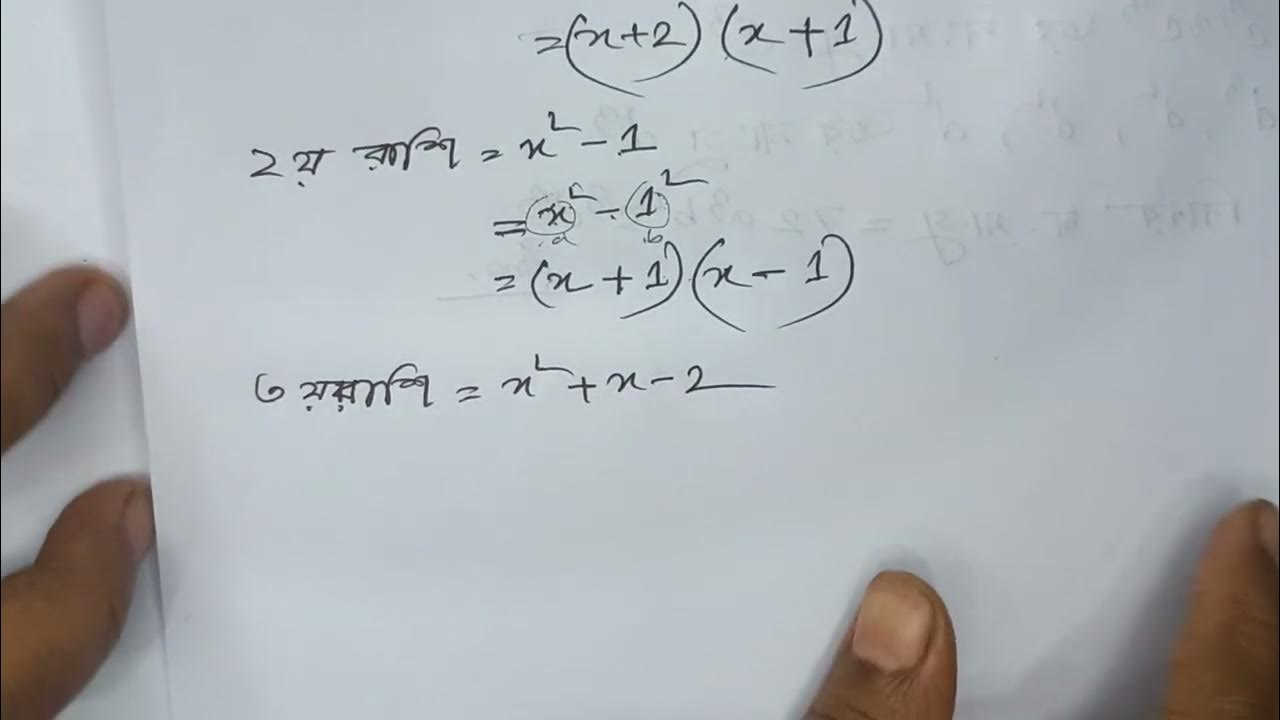 =(x+2)(x+1)
২য় রাশি = x² - 1
= x² - 1²
a b
= (x + 1)(x - 1)
৩য় রাশি = x² + x - 2